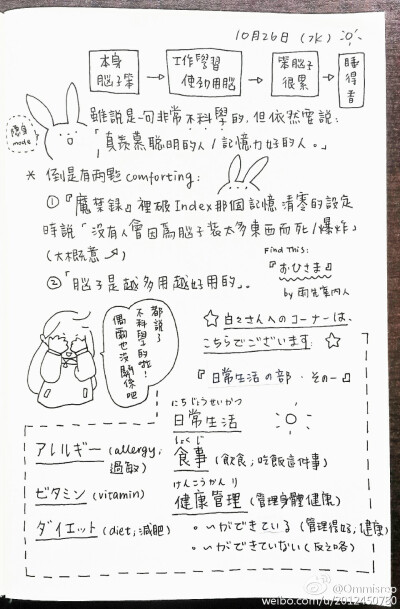 10月26日 (水)
本身
腦子笨
工作學習
使勁用腦
笨腦子
很累
睡得香
隱身
mode
雖說是一句非常不科學的,但依然要說:
「真羨慕聰明的人/記憶力好的人。」
* 倒是有兩點comforting:
①『魔禁録』裡破Index那個記憶清零的設定
時說「沒有人會因為腦子裝太多東西而死/爆炸」
(大概意思)
②「腦子是越多用越好用的。」
Find This:
『おひさま』
by 雨先案内人
都說了
不科學的啦!
偶爾也沒
關係吧
☆ 白々さんへのコーナーは、
こちらでございます ☆
『日常生活の部・その一』
にちじょうせいかつ
日常生活
アレルギー (allergy; 過敏)
しょくじ
食事 (飲食;吃飯這件事)
ビタミン (vitamin)
けんこうかんり
健康管理 (管理身體健康)
ダイエット (diet; 減肥)
。いができている (管理得好;健康)
。いができていない (反之咯)
@Ommisrop
weibo.com/u/2912450780